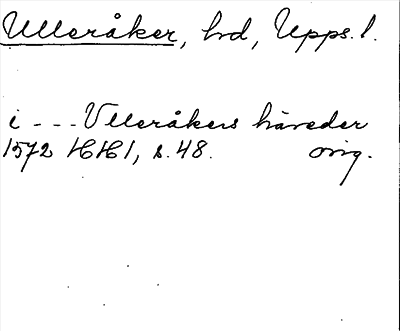 Ulleråker, hd, Upps. l.
i --- Vlleråkers häreder
1572 HH1, s. 48. orig.